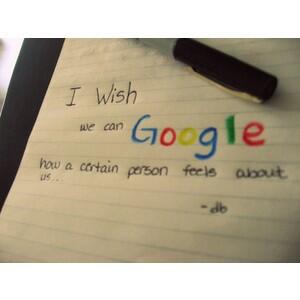 I Wish
we can Google
how a certain person feels about
us...
- db